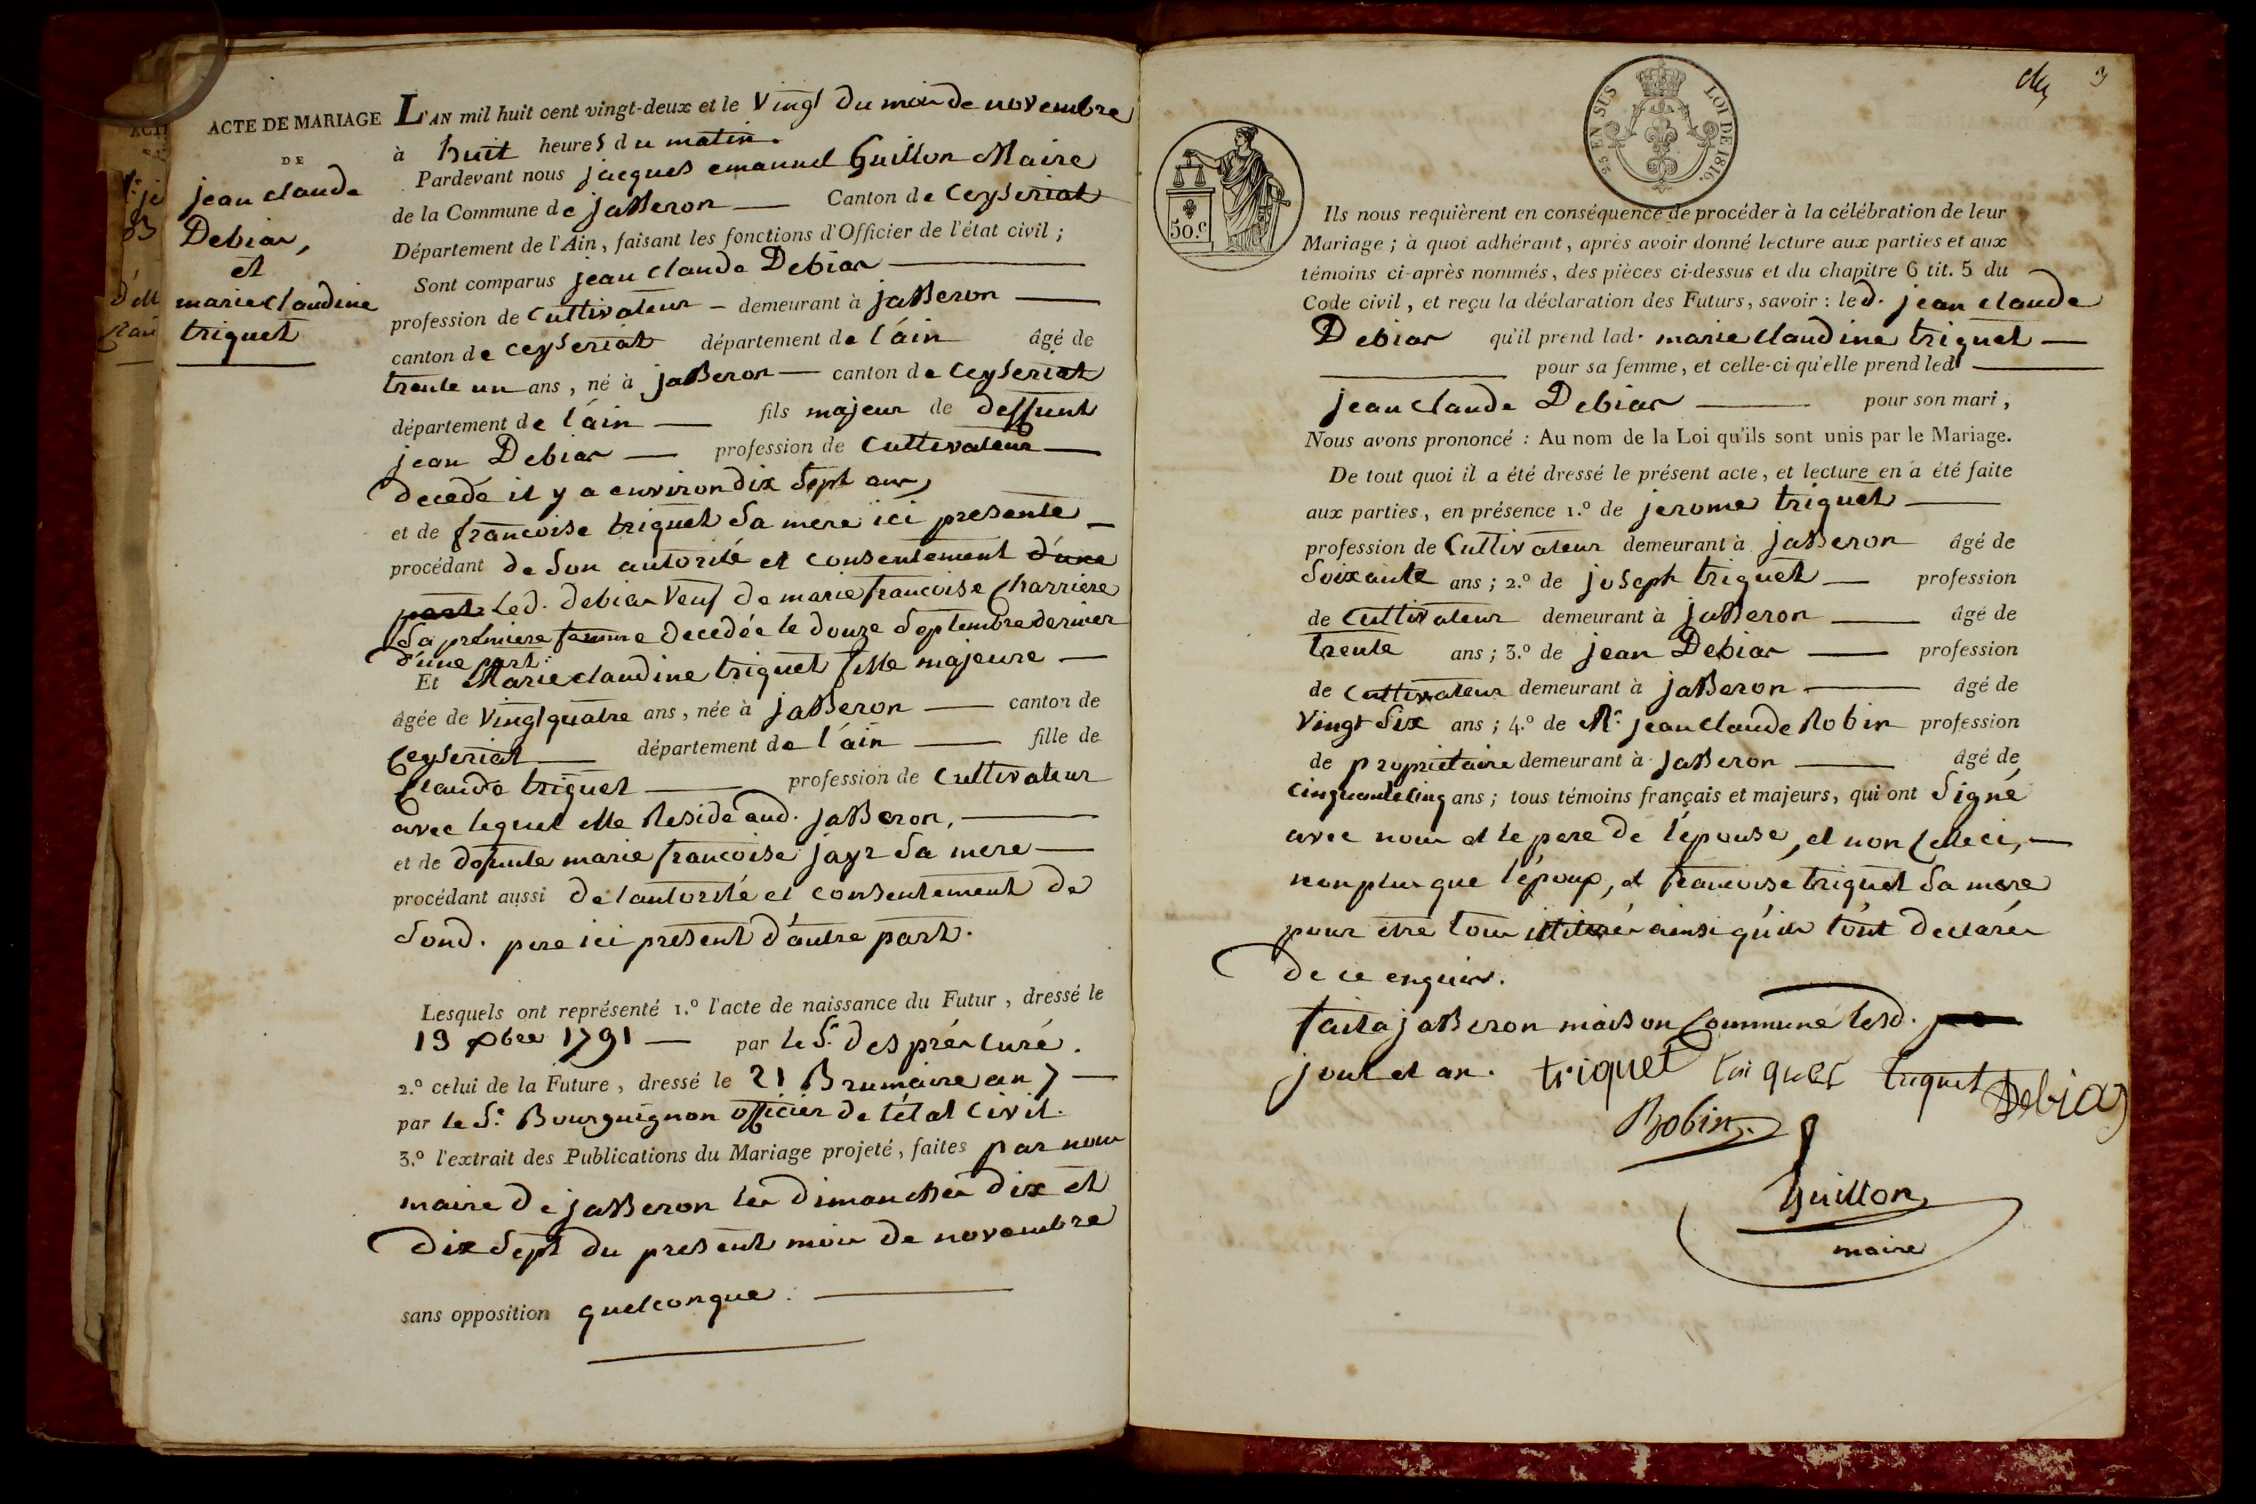 ACTE DE MARIAGE
DE
jean claude
Debias,
et
marie claudine
triquet
L'AN mil huit cent vingt-deux et le vingt du mois de novembre
à huit heures du matin.
Pardevant nous jacques emanuel Guillon Maire
de la Commune de jasseron — Canton de Ceyseriat
Département de l'Ain, faisant les fonctions d'Officier de l'état civil ;
Sont comparus jean claude Debias —
profession de cultivateur — demeurant à jasseron —
canton de ceyseriat département de l'ain âgé de
trente un ans, né à jasseron — canton de Ceyseriat
département de l'ain — fils majeur de deffunt
jean Debias — profession de cultivateur —
decedé il y a environ dix sept ans,
et de francoise triquet sa mere ici presente —
procédant de son autorité et consentement d'une
part. led. debias veuf de marie francoise Charriere
sa premiere femme decedée le douze septembre dernier
d'une part.
Et Marie claudine triquet fille majeure —
âgée de vingt quatre ans, née à jasseron — canton de
Ceyseriat — département de l'ain — fille de
Claude triquet — profession de cultivateur
avec lequel elle Reside aud. jasseron, —
et de defunte marie francoise jayr sa mere —
procédant aussi de l'autorité et consentement de
sond. pere ici present d'autre part.
Lesquels ont représenté 1.º l'acte de naissance du Futur, dressé le
13 Xbre 1791 — par le S.r després curé.
2.º celui de la Future, dressé le 21 Brumaire an 7 —
par le S.r Bourguignon officier de l'état civil.
3.º l'extrait des Publications du Mariage projeté, faites par nous
maire de jasseron les dimanches dix et
dix sept du present mois de novembre
sans opposition quelconque. —
3
25 EN SUS
LOI DE 1816.
50.c
Ils nous requièrent en conséquence de procéder à la célébration de leur
Mariage ; à quoi adhérant, après avoir donné lecture aux parties et aux
témoins ci-après nommés, des pièces ci-dessus et du chapitre 6 tit. 5 du
Code civil, et reçu la déclaration des Futurs, savoir : led. jean claude
Debias qu'il prend lad. marie claudine triquet —
— pour sa femme, et celle-ci qu'elle prend led. —
jean claude Debias — pour son mari,
Nous avons prononcé : Au nom de la Loi qu'ils sont unis par le Mariage.
De tout quoi il a été dressé le présent acte, et lecture en a été faite
aux parties, en présence 1.º de jerome triquet —
profession de Cultivateur demeurant à jasseron âgé de
soixante ans ; 2.º de joseph triquet — profession
de cultivateur demeurant à jasseron — âgé de
trente ans ; 3.º de jean Debias — profession
de cultivateur demeurant à jasseron — âgé de
vingt six ans ; 4.º de M.r jean claude Robin profession
de proprietaire demeurant à jasseron — âgé de
cinquante cinq ans ; tous témoins français et majeurs, qui ont signé
avec nous et le pere de l'épouse, et non celle ci, —
non plus que l'époux, et francoise triquet sa mere
pour etre tous illitérés ainsi qu'ils l'ont declarés
de ce enquis.
fait a jasseron maison Commune lesd.
jour et an. triquet triquet triquet Debias
Robin
Guillon
maire